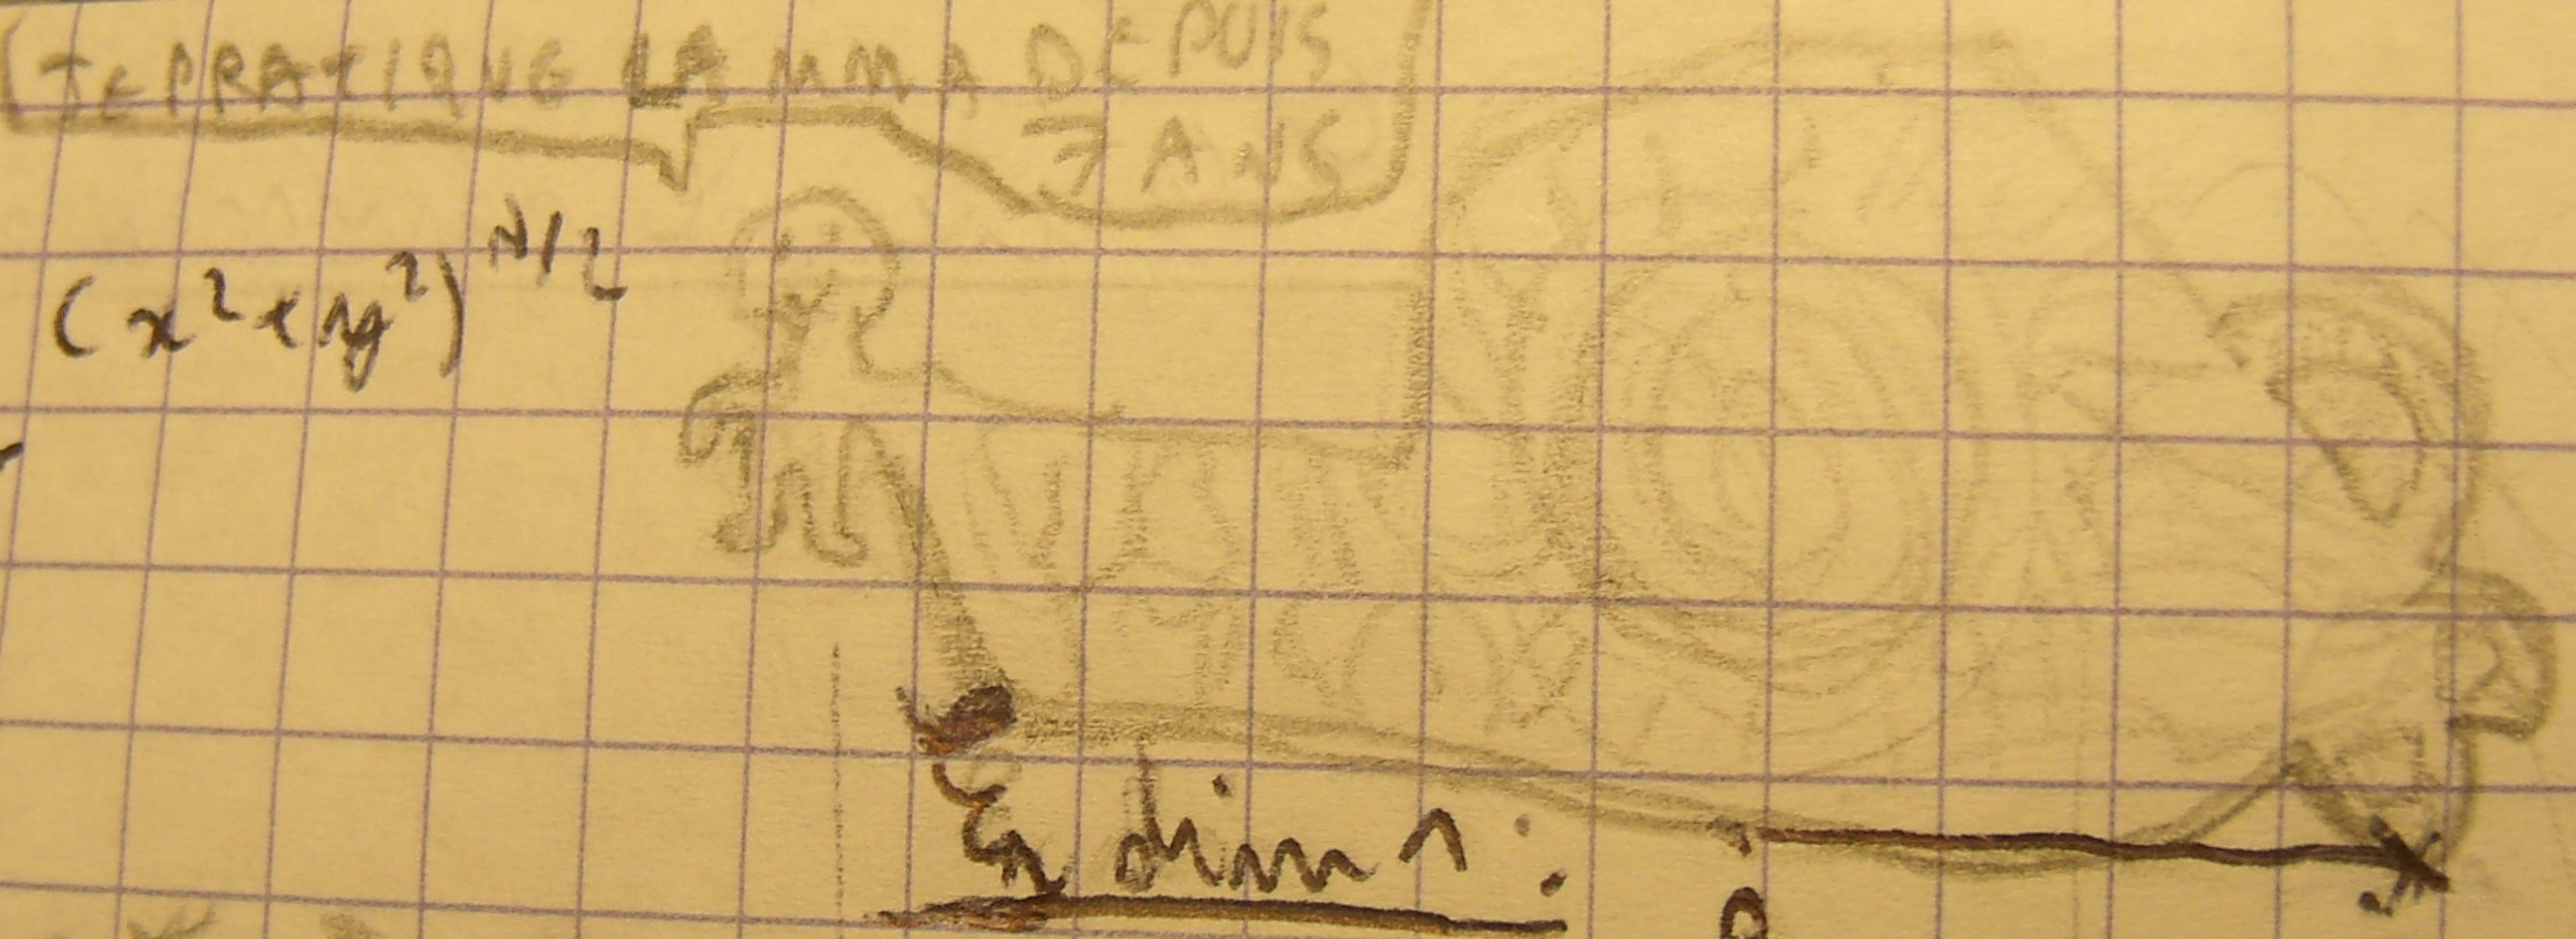 JE PRATIQUE LA MMA DEPUIS
7 ANS
(x²+y²)^N/2
En dim 1:
0